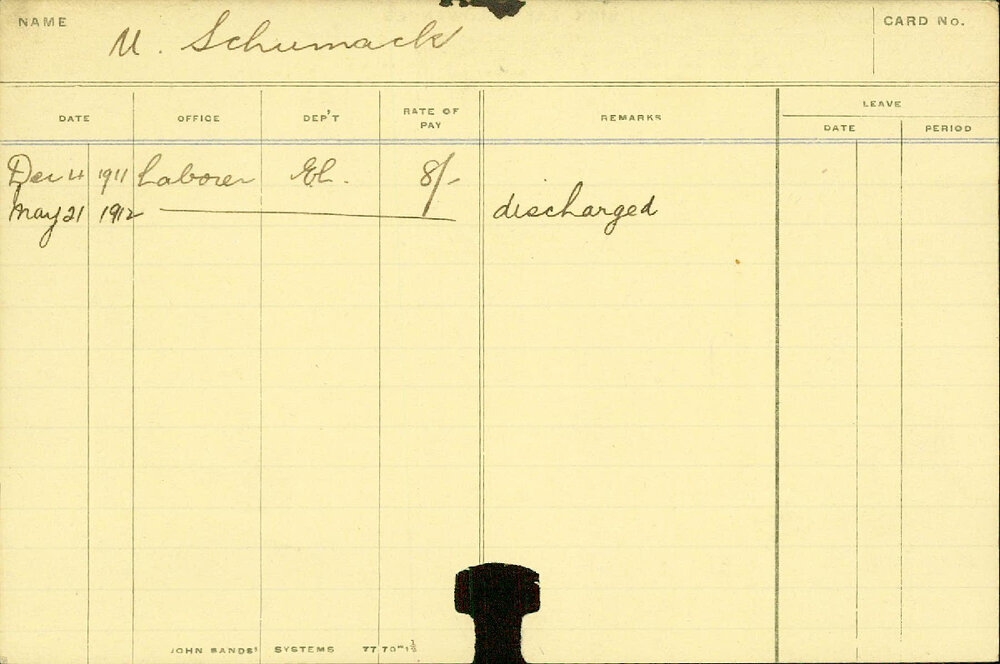 NAME U. Schumack CARD No.
LEAVE
DATE OFFICE DEP'T RATE OF PAY REMARKS DATE PERIOD
Dec 4 1911 Laborer El. 8/-
May 21 1912 discharged
JOHN SANDS' SYSTEMS 77 70